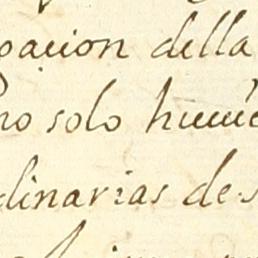 oacion della
no solo hum
dinarias de s